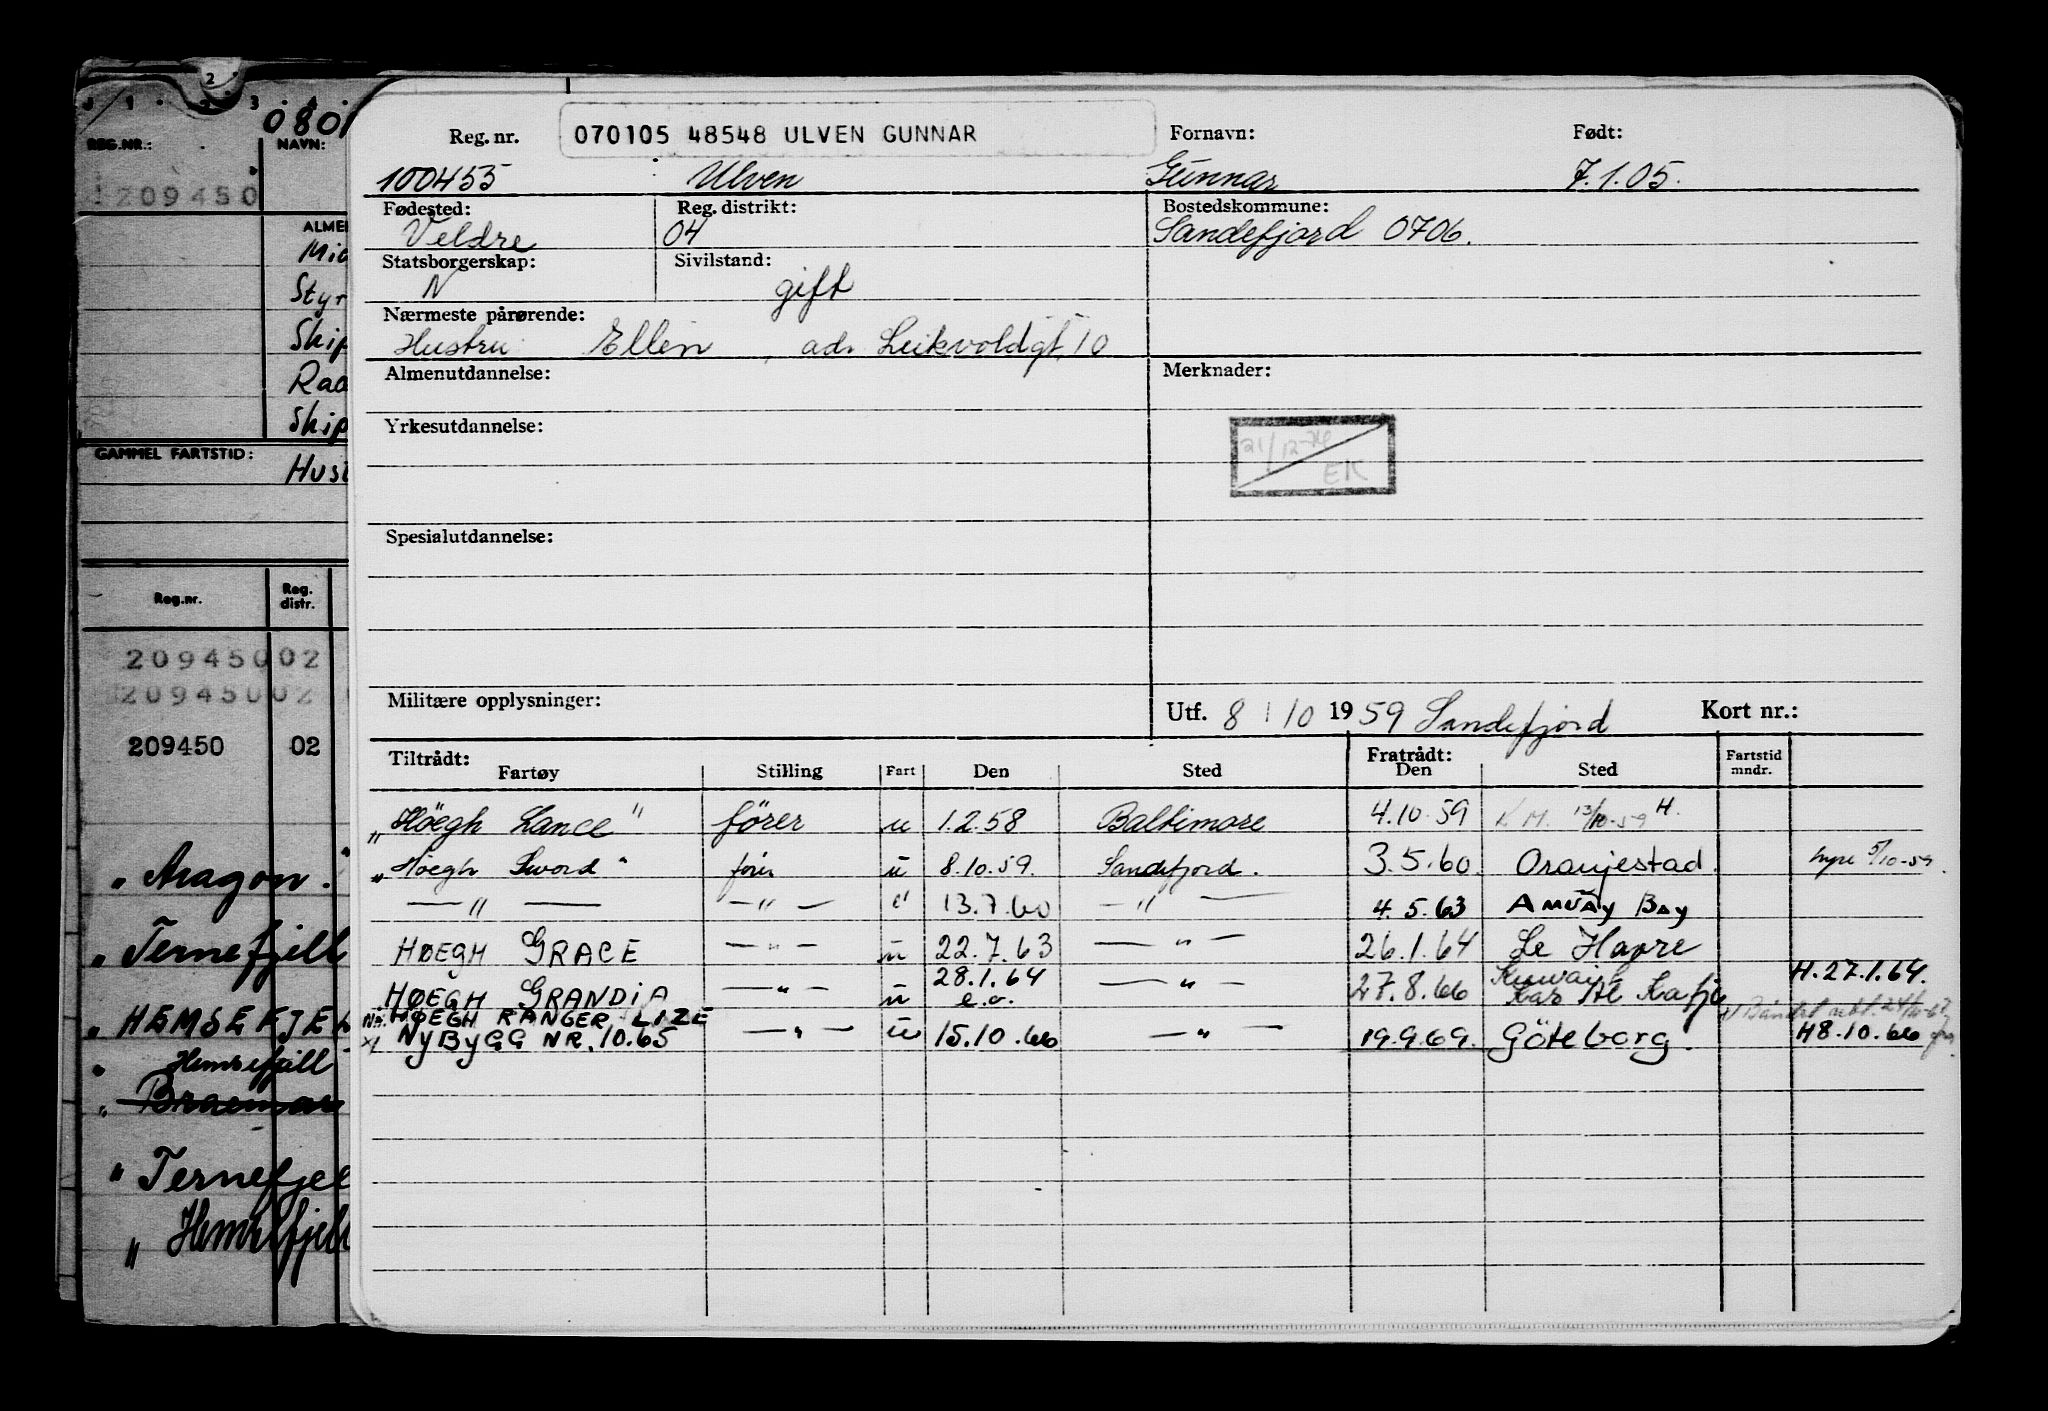 2
1 . 2 3 . 4
0801
REG.NR.:
NAVN:
209450
ALME
Mid
Styr
Skip
Rad
Skip
GAMMEL FARTSTID:
Hust
Reg.nr.
Reg. distr.
209450 02
209450 02
209450 02
„ Aragon. "
„ Ternefjell
„ HEMSEFJEL
„ Hemsefjell
„ Braemar
„ Ternefjel
„ Hemsefjell
Reg. nr. 070105 48548 ULVEN GUNNAR Fornavn: Født:
100455 Ulven Gunnar 7.1.05.
Fødested: Reg. distrikt: Bostedskommune:
Veldre 04 Sandefjord 0706.
Statsborgerskap: Sivilstand:
N gift
Nærmeste pårørende:
Hustru Ellen , adr Leikvoldgt. 10
Almenutdannelse: Merknader:
Yrkesutdannelse:
21/12-76
EK
Spesialutdannelse:
Militære opplysninger: Utf. 8 / 10 1959 Sandefjord Kort nr.:
Tiltrådt: Fratrådt:
Fartøy Stilling Fart Den Sted Den Sted Fartstid mndr.
„Höegh Lance" förer u 1.2.58 Baltimore 4.10.59 K.M. 13/10-59 H.
„Höegh Sword" förer u 8.10.59. Sandefjord. 3.5.60. Oranjestad. hyre 5/10-59.
— " — — " — " 13.7.60 — " — 4.5.63 AMUAY BAY
HØEGH GRACE — " — u 22.7.63 — " — 26.1.64 Le Havre
HØEGH GRANDIA — " — u 28.1.64 e.o. — " — 27.8.66 Kuwait Ras Al Kafji H.27.1.64.
HØEGH RANGER LIZE
x) NYBYGG NR. 1065 — " — u 15.10.66 — " — 19.9.69. Göteborg. H8.10.66